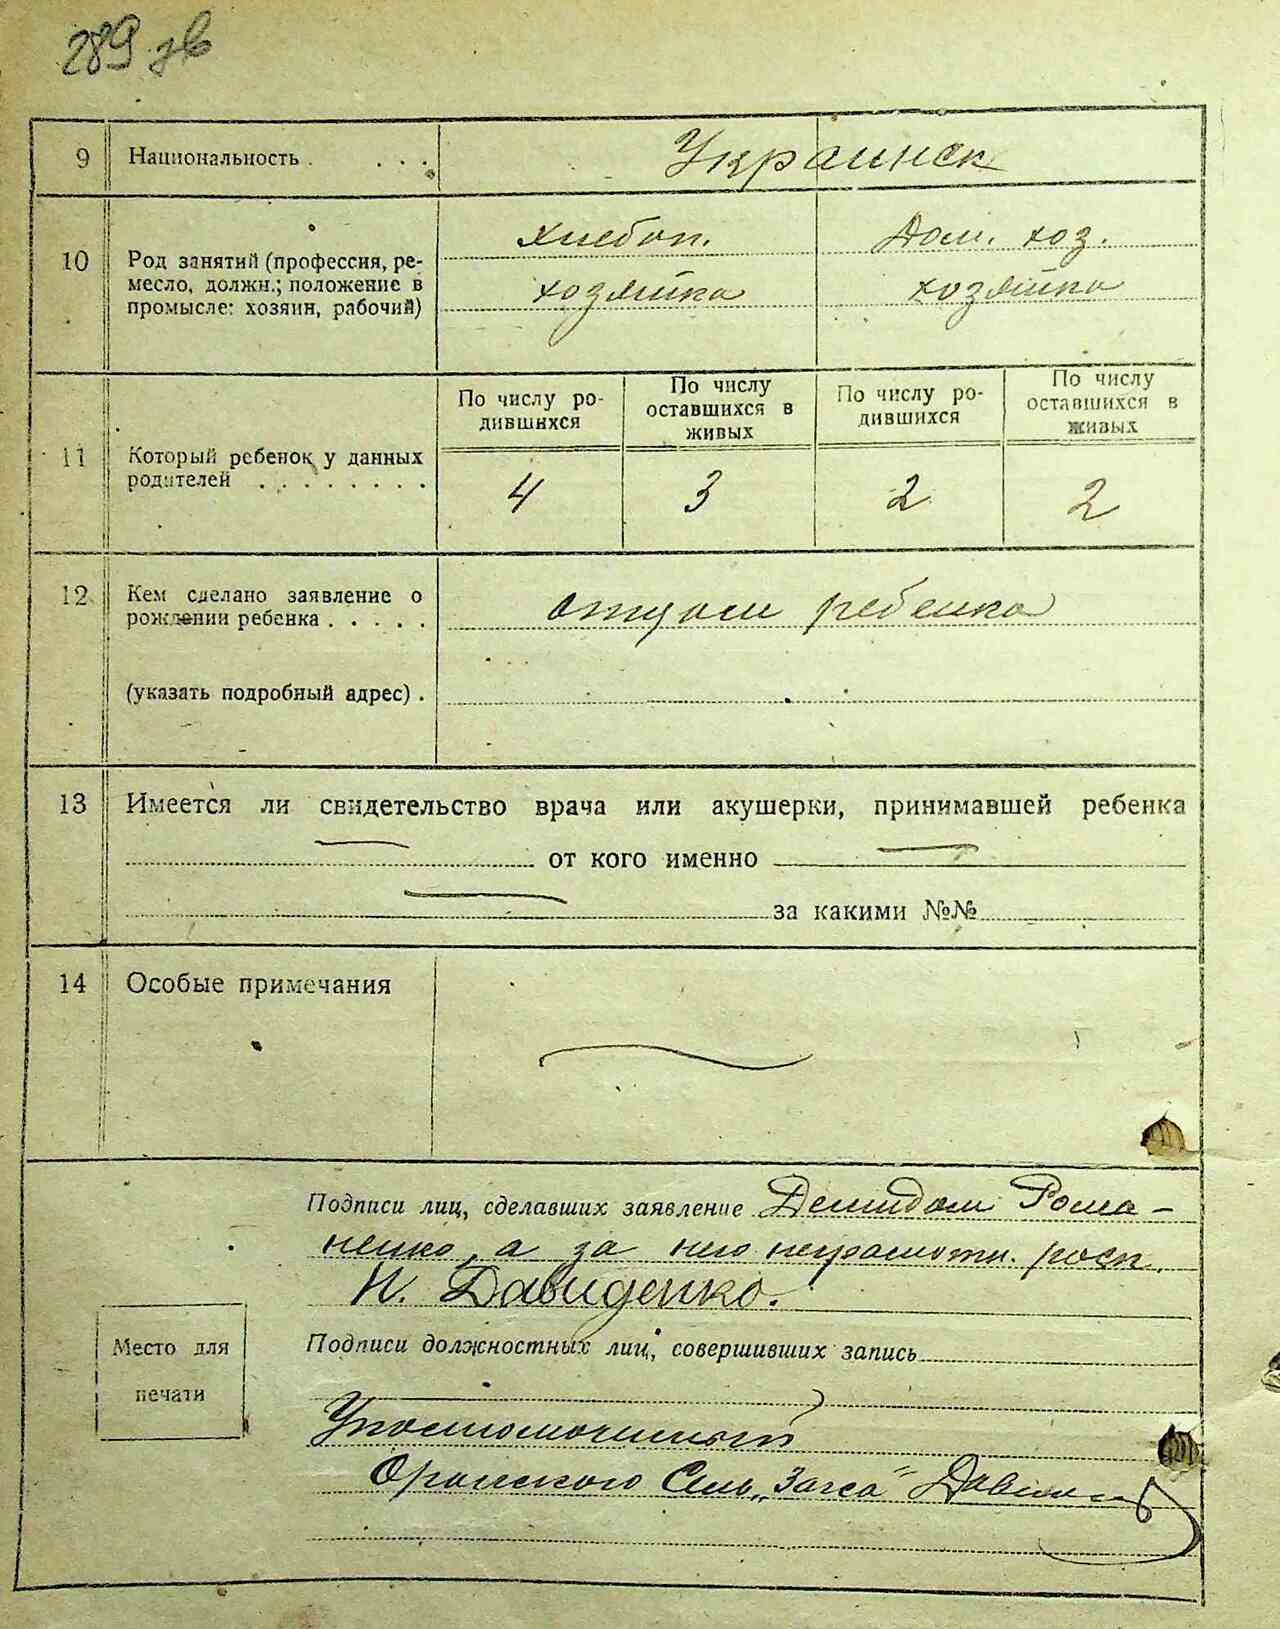 289 зв
9 Национальность . . . . Украинск
10 Род занятий (профессия, ре-
месло, должн.; положение в
промысле: хозяин, рабочий)
хлебоп. Дом. хоз.
хозяйка хозяйка
По числу ро-
дившихся
По числу
оставшихся в
живых
По числу ро-
дившихся
По числу
оставшихся в
живых
11 Который ребенок у данных
родителей . . . . . . . .
4 3 2 2
12 Кем сделано заявление о
рождении ребенка . . . . .
отцом ребенка
(указать подробный адрес) .
13 Имеется ли свидетельство врача или акушерки, принимавшей ребенка
от кого именно
за какими №№
14 Особые примечания
Подписи лиц, сделавших заявление Демидом Рома-
ненко, а за него неграмотн. росп.
И. Давиденко.
Место для
печати
Подписи должностных лиц, совершивших запись
Уполномоченный
Оранского Сель „Загса"